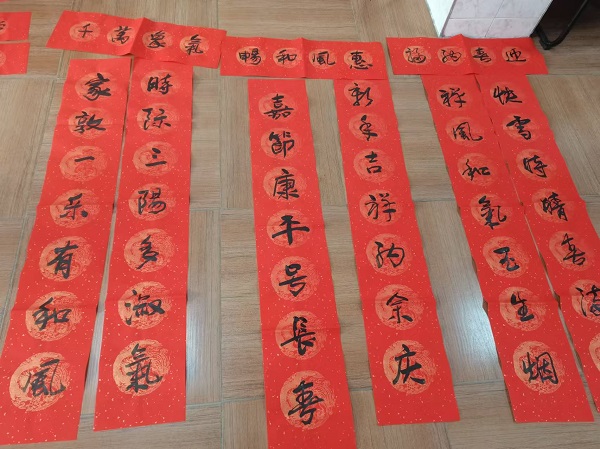 迎喜納福
快雪時晴喜滿
祥風和氣玉生烟
惠風和暢
新年吉祥納余庆
嘉節康平号長春
氣象萬千
時际三陽多淑氣
家敦一乐有和風